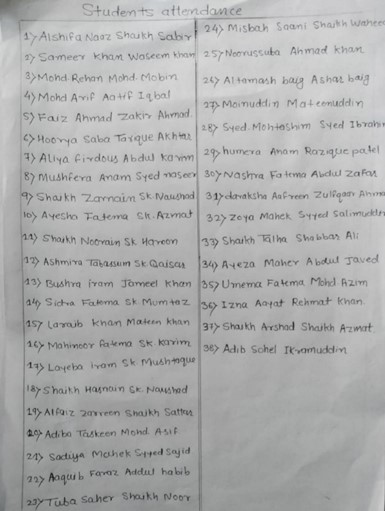 Students attendance
1) Alshifa Naaz Shaikh Sabir
2) Sameer Khan Waseem khan
3) Mohd Rehan Mohd. Mobin
4) Mohd Arif Aatif Iqbal
5) Faiz Ahmad Zakir Ahmad.
6) Hoorya Saba Tarque Akhtar
7) Aliya firdous Abdul karim
8) Mushfera Anam Syed naseer
9) Shaikh Zarnain Sk. Naushad
10) Ayesha Fatema Sk. Azmat
11) Shaikh Noorain Sk. Haroon
12) Ashmira Tabassum Sk. Qaisar
13) Bushra iram Jameel Khan
14) Sidra Fatema Sk Mumtaz
15) Laraib khan Mateen khan
16) Mahinoor fatema Sk. karim
17) Layeba iram Sk. Mushtaque
18) Shaikh Hasnain Sk. Naushad
19) Alfaiz zarreen Shaikh Sattar
20) Adiba Taskeen Mohd. Asif
21) Sadiya Mahek Syyed Sajid
22) Aaquib Faraz Addul habib
23) Tuba Saher Shaikh Noor
24) Misbah Saani Shaikh Waheed
25) Noorussuba Ahmad khan
26) Altamash baig Ashar baig
27) Moinuddin Mateenuddin
28) Syed Mohtashim Syed Ibrahim
29) humera Anam Razique patel
30) Nashra Fatema Abdul Zafar
31) daraksha Aafreen Zulfiqar Ahma
32) Zoya Mahek Syyed Salimuddin
33) Shaikh Talha Shabbar Ali
34) Ayeza Maher Abdul Javed
35) Umema Fatema Mohd Azim
36) Izna Aayat Rehmat Khan.
37) Shaikh Arshad Shaikh Azmat.
38) Adib Sohel Ikramuddin